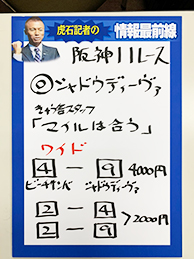 虎石記者の
情報最前線
阪神11レース
◎シャドウディーヴァ
きゅう舎スタッフ
「マイルは合う」
ワイド
4 — 9 4000円
ビーチサンバ シャドウディーヴァ
2 — 4
2 — 9 >2000円